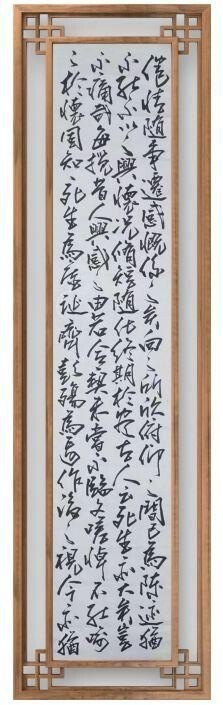 倦情随事遷感慨係之矣向之所欣俯仰之間已為陳迹猶
不能不以之興懷況脩短随化終期於盡古人云死生亦大矣豈
不痛哉每攬昔人興感之由若合一契未嘗不臨文嗟悼不能喻
之於懷固知一死生為虛誕齊彭殤為妄作後之視今亦猶